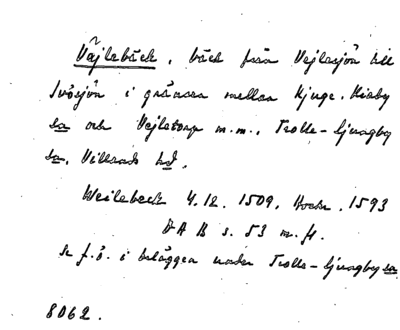 Vejlebäck, bäck från Vejlesjön till
Ivösjön i gränsen mellan Kjuge, Kiaby
sn och Vejlatorp m.m., Trolle-Ljungby
sn, Villands hd.
Weilebeck 4.12. 1509, 1593
D A B s. 53 m.fl.
Se f.ö. i beläggen under Trolle-Ljungby sn
8062.